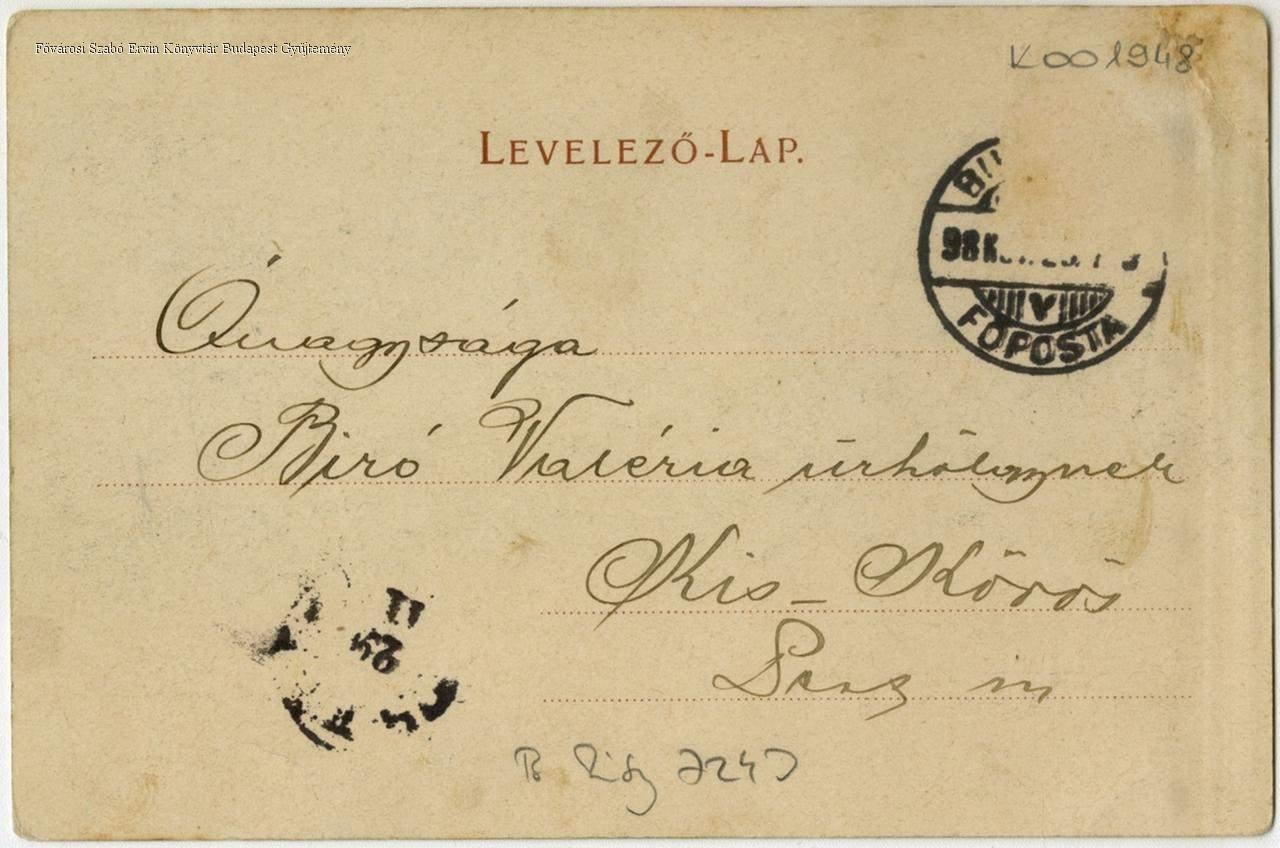 Fővárosi Szabó Ervin Könyvtár Budapest Gyűjtemény
K001948
LEVELEZŐ-LAP.
98
V
FŐPOSTA
Őnagysága
Biró Valéria úrhölgynek
Kis-Kőrös
Pest m
II
25
B